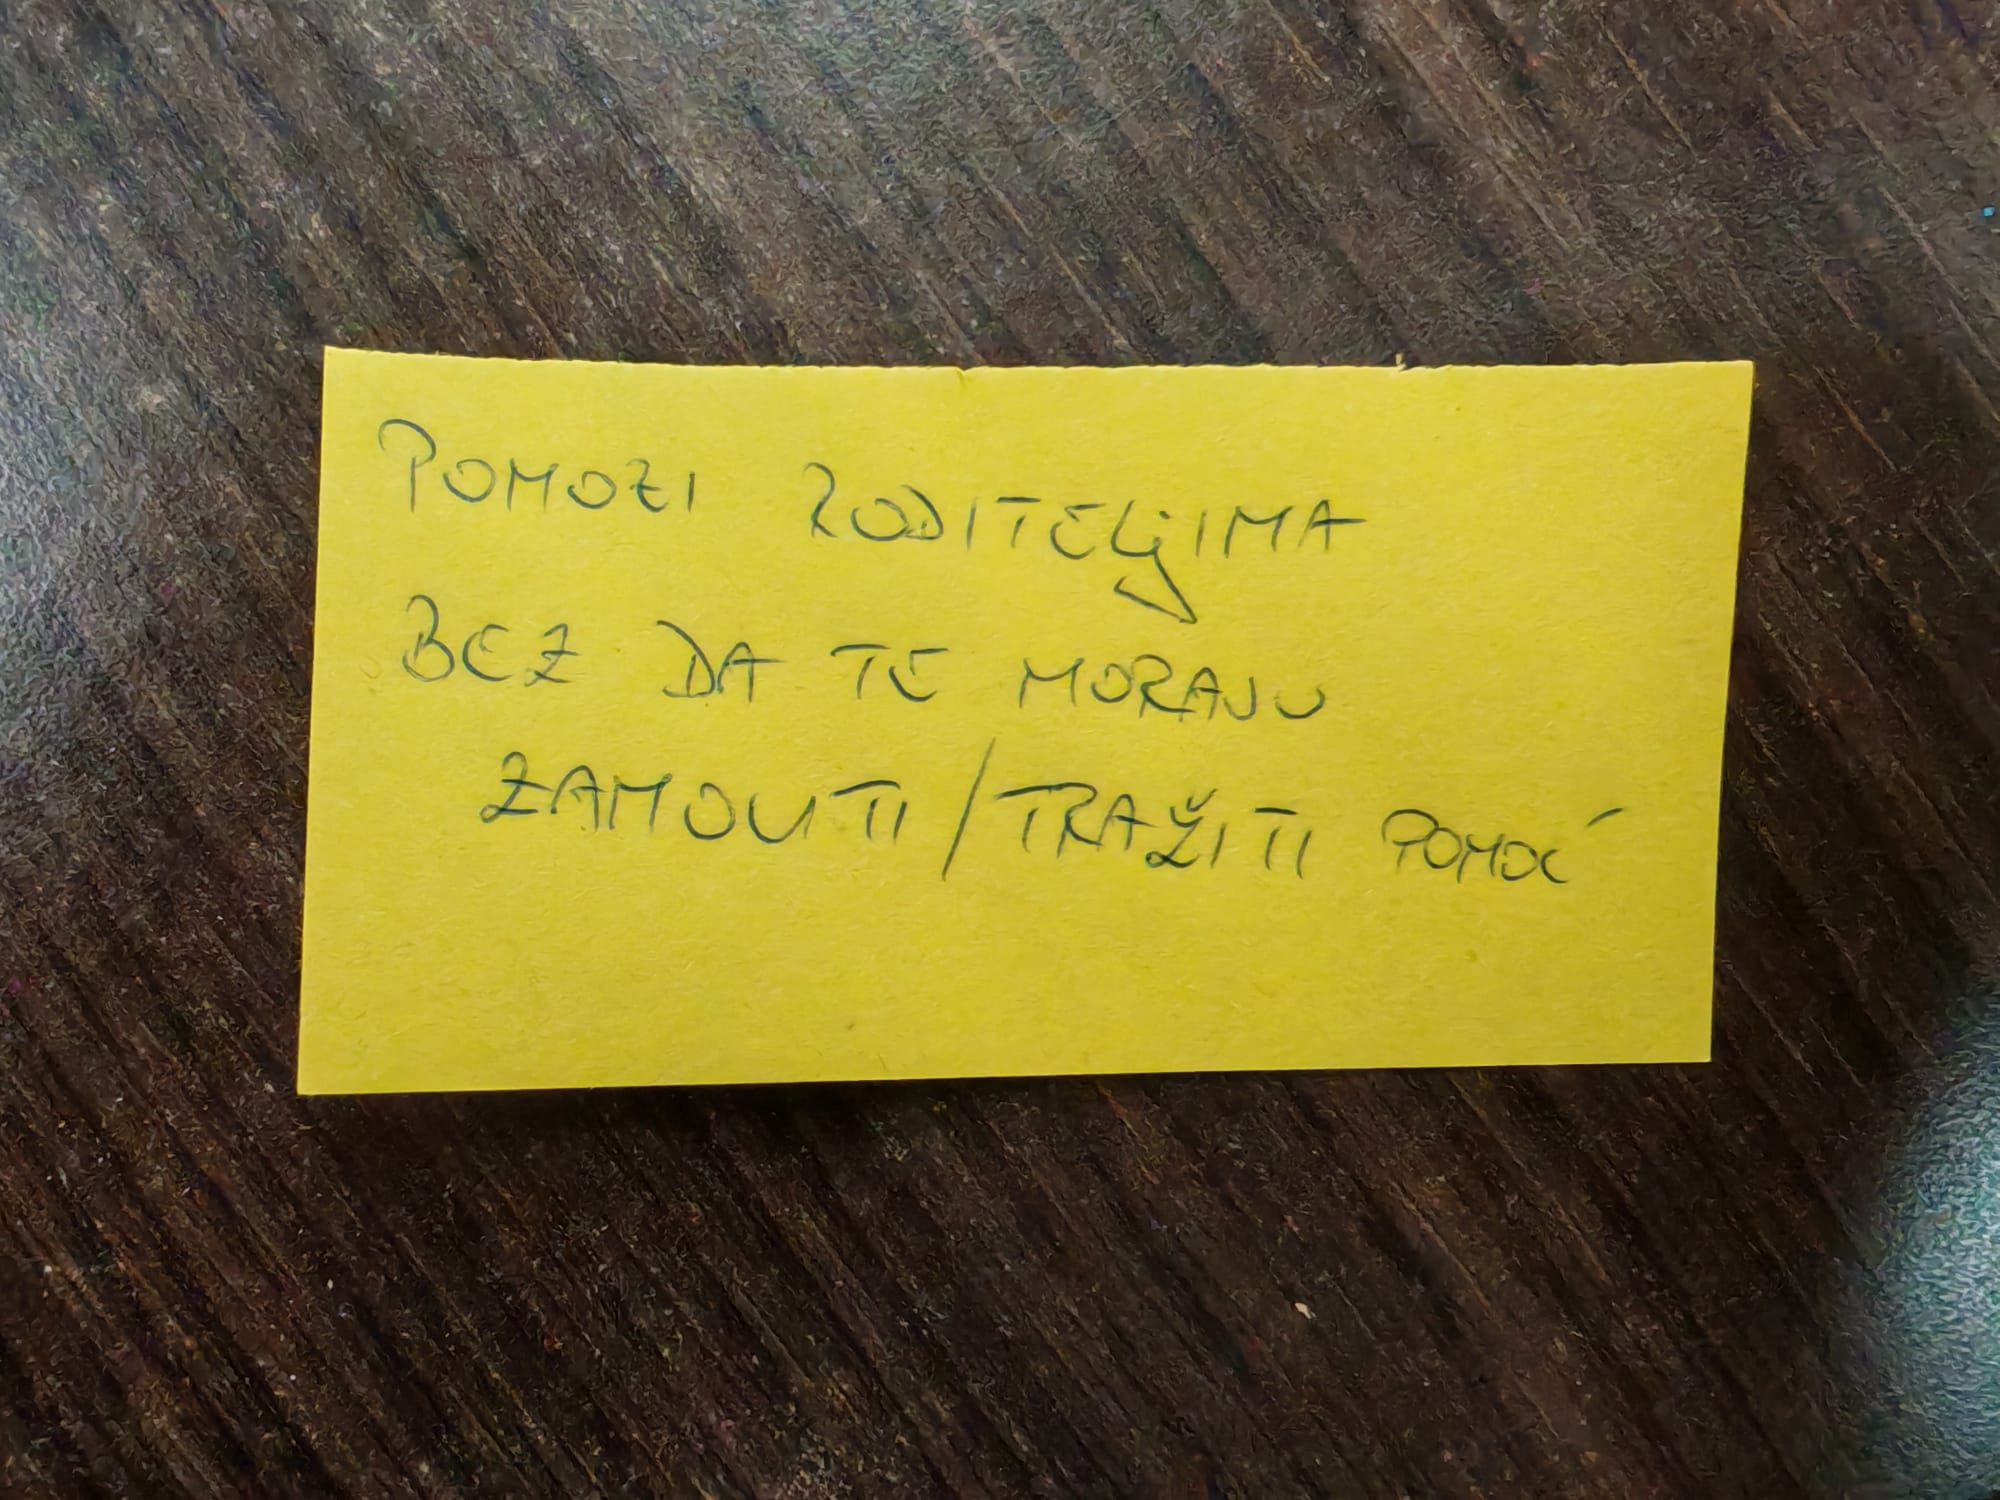 POMOZI RODITELjIMA
BEZ DA TE MORAJU
ZAMOLITI/TRAŽITI POMOĆ